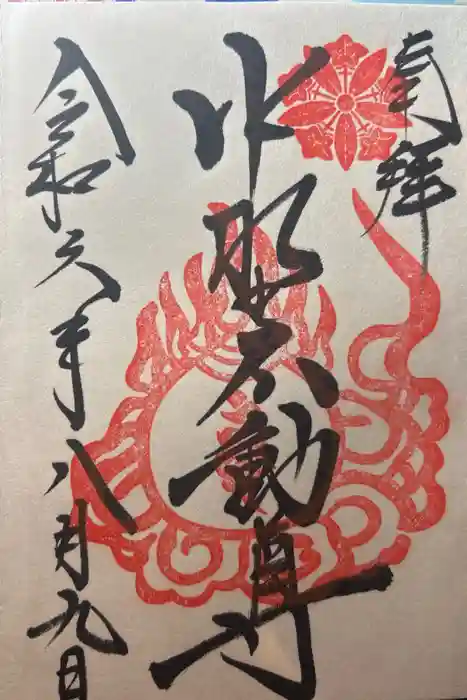 奉拝
水不動尊
令和六年八月九日